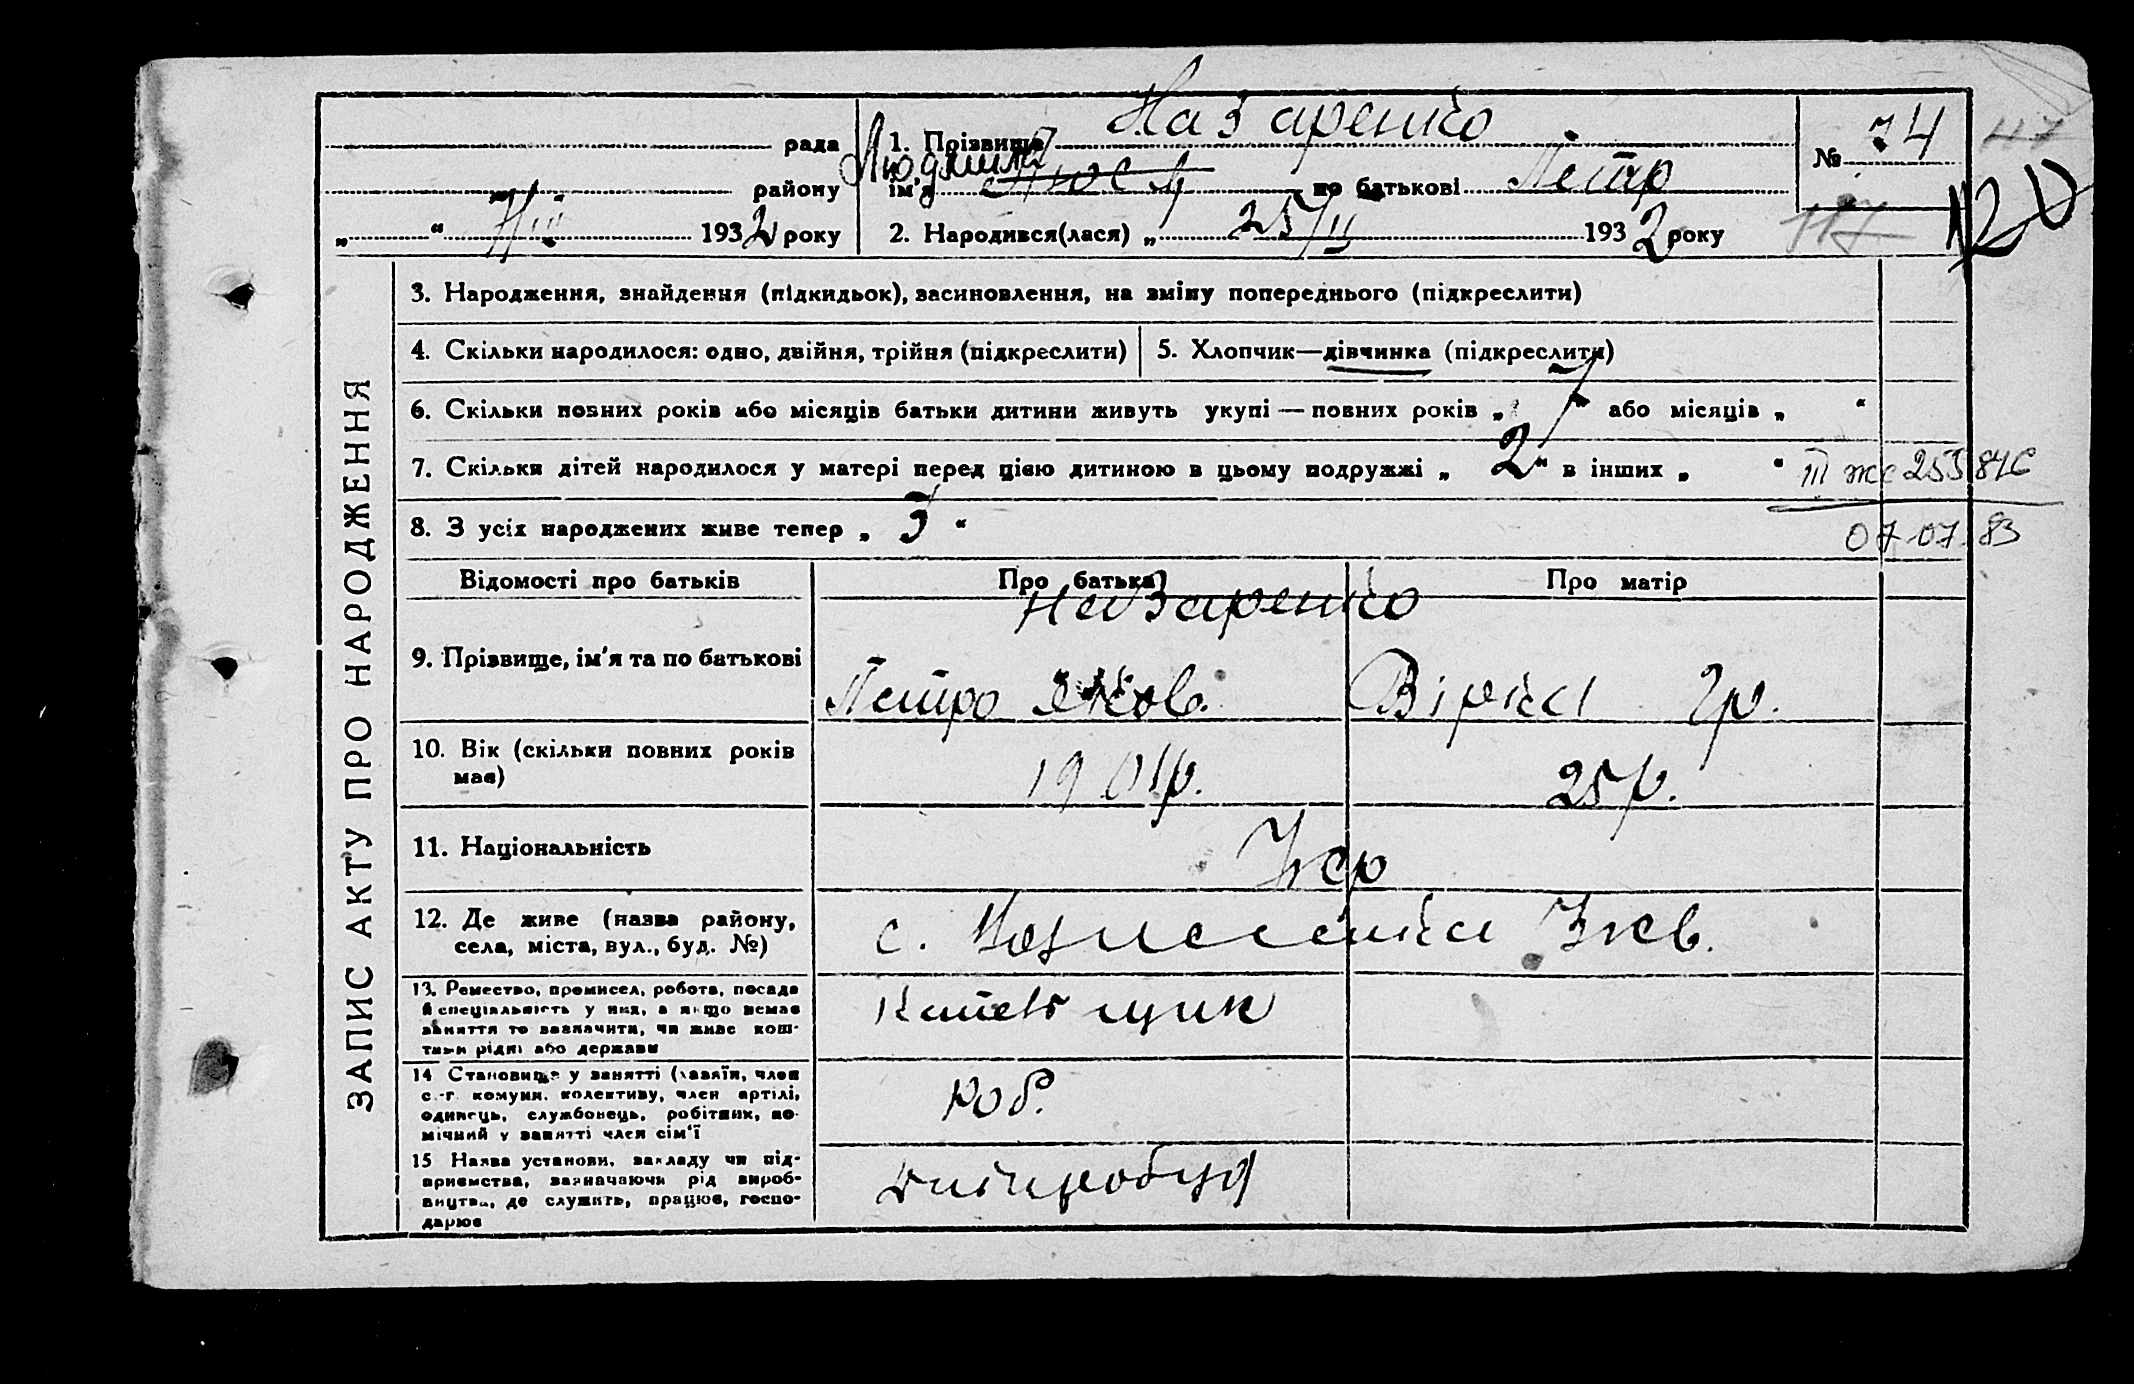 Назаренко
рада 1. Прізвище № 74 47
Людмила
району ім'я Люся по батькові Петр 120
„ “ 7/III 1932 року 2. Народився(лася) „ 25/II 1932 року 117
ЗАПИС АКТУ ПРО НАРОДЖЕННЯ
3. Народження, знайдення (підкидьок), засиновлення, на зміну попереднього (підкреслити)
4. Скільки народилося: одно, двійня, трійня (підкреслити) 5. Хлопчик—дівчинка (підкреслити)
6. Скільки повних років або місяців батьки дитини живуть укупі — повних років „ 7 “ або місяців „ “
7. Скільки дітей народилося у матері перед цією дитиною в цьому подружжі „ 2 “ в інших „ “ III жс 253846
8. З усіх народжених живе тепер „ 3 “ 07 07 83
Відомості про батьків Про батька Про матір
Назаренко
9. Прізвище, ім'я та по батькові Петро Яков. Вірка Гр.
10. Вік (скільки повних років має) 1901р. 25р.
11. Національність Укр
12. Де живе (назва району, села, міста, вул., буд. №) с. Вознесенка
13. Ремество, промисел, робота, посада й спеціяльність у них, а якщо немає заняття то зазначити, чи живе коштами рідні або держави
14 Становище у занятті (хазяїн, член с.-г. комуни, колективу, член артілі, одинець, службовець, робітник, помічний у занятті член сім'ї Роб.
15 Назва установи, закладу чи підприємства, зазначаючи рід виробництва, де служить, працює, господарює Дніпробуд